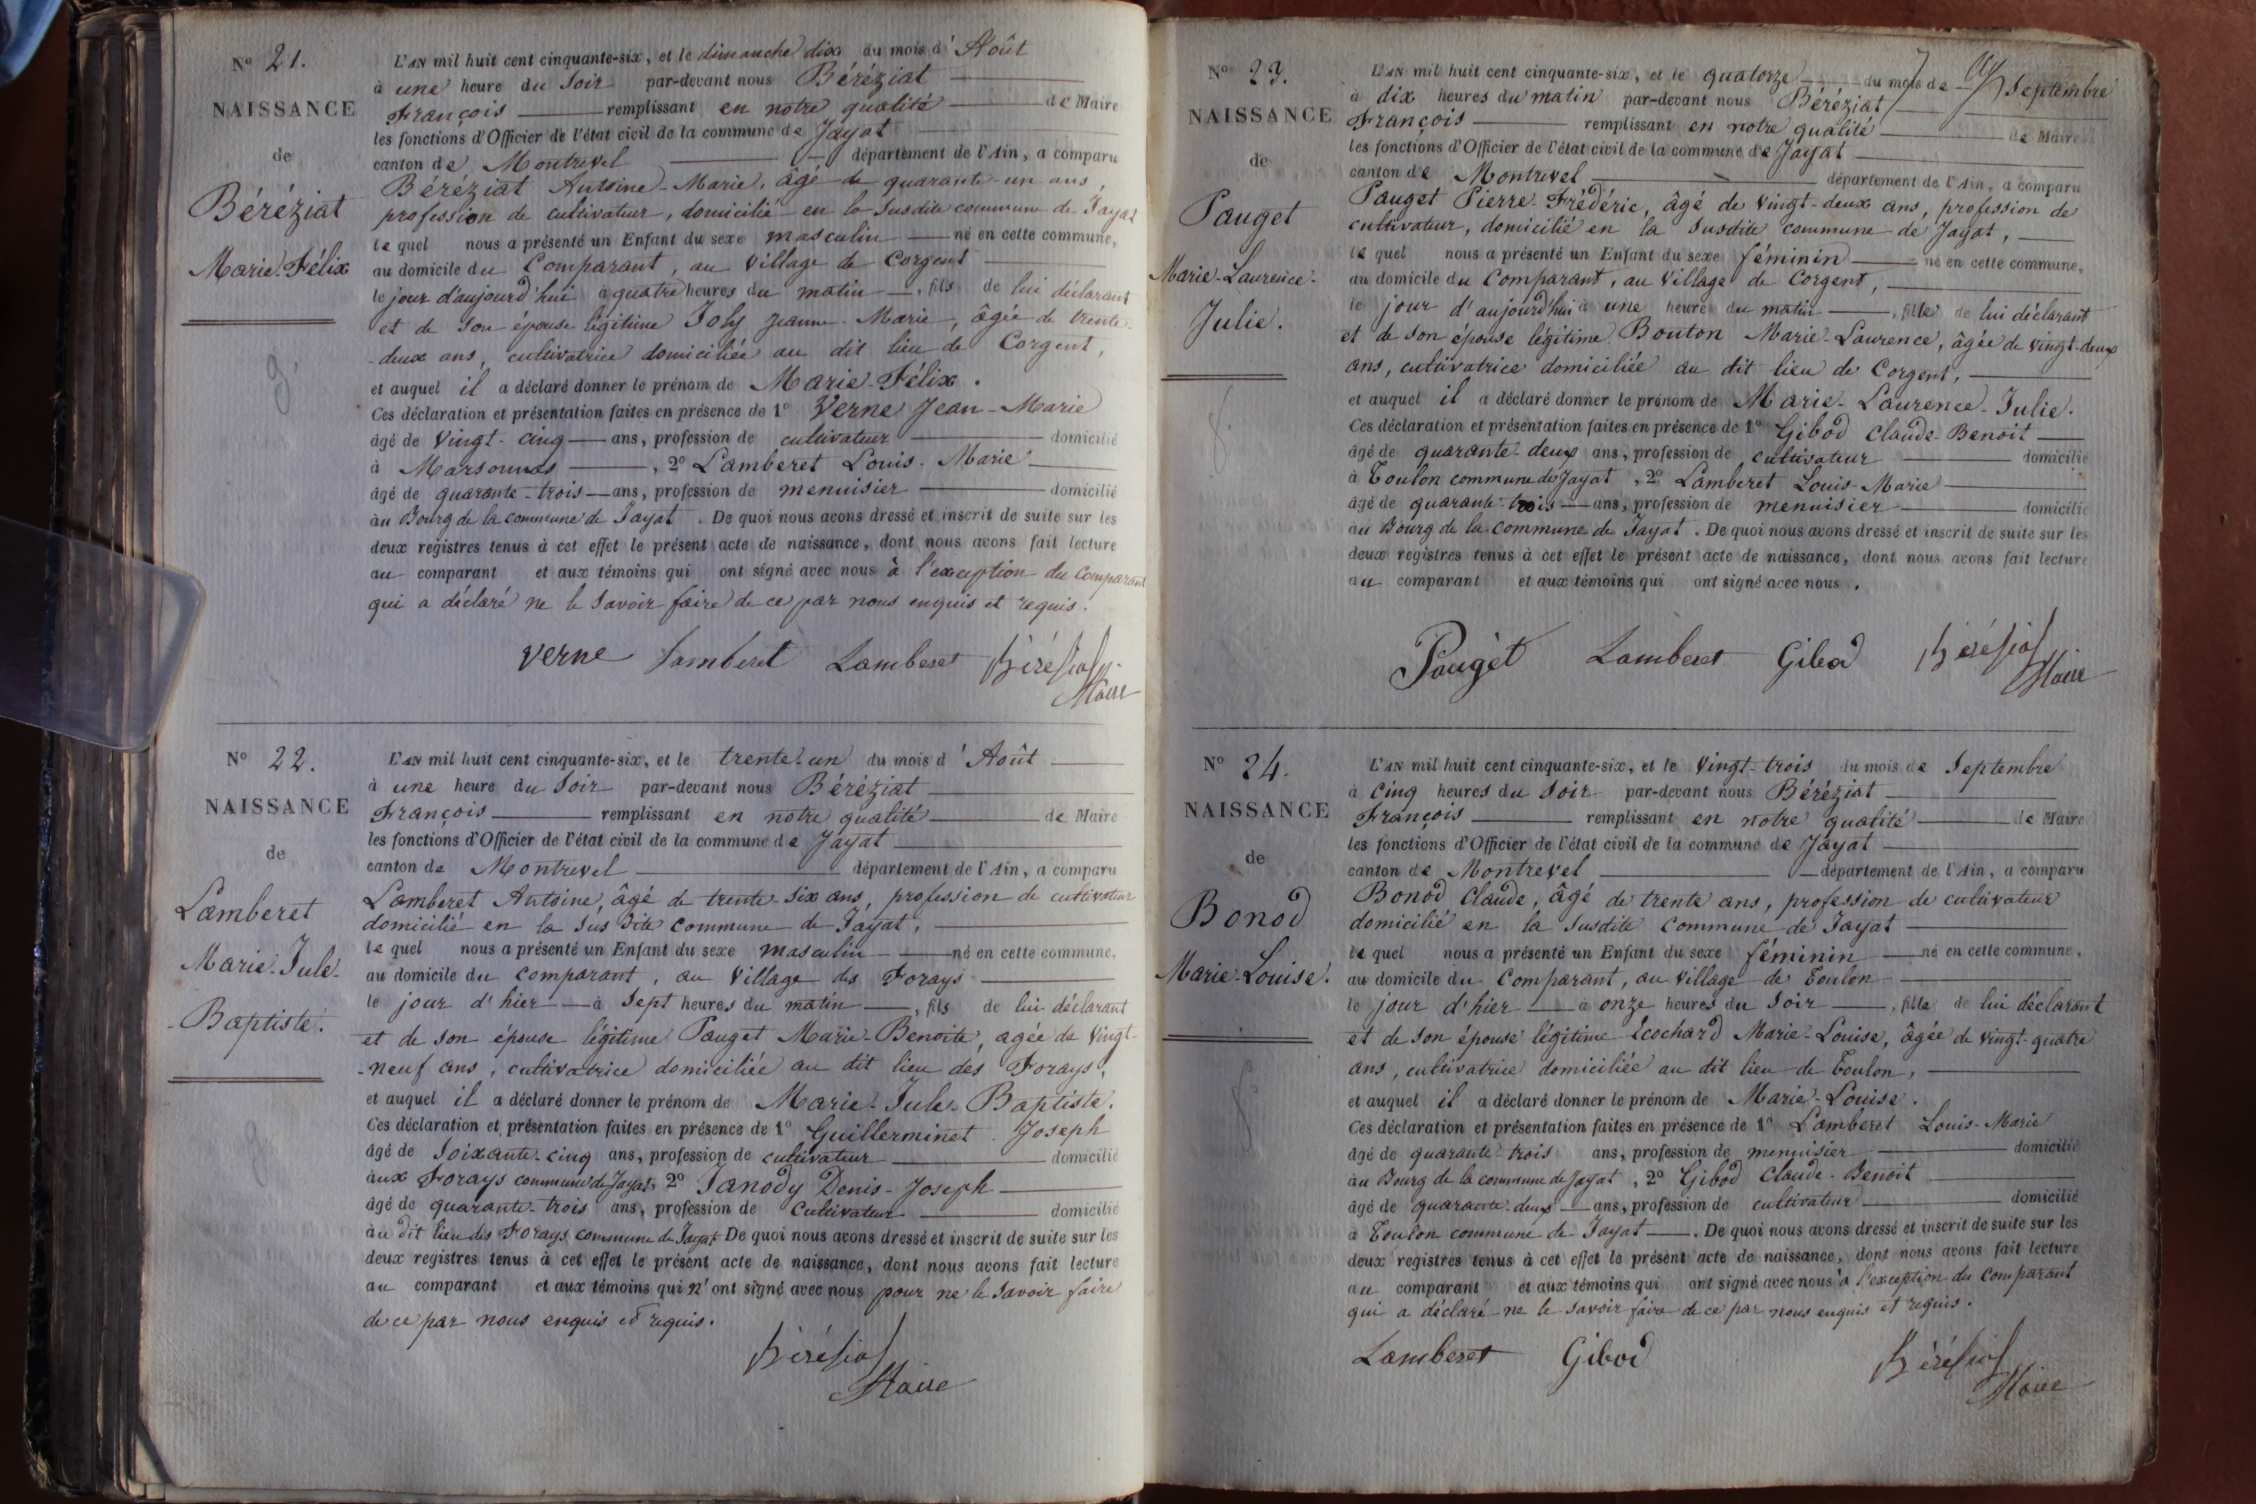 N° 21.
NAISSANCE
de
Béréziat
Marie-Félix
L'AN mil huit cent cinquante-six, et le dimanche dix du mois d'Août
à une heure du Soir par-devant nous Béréziat
François remplissant en notre qualité de Maire
les fonctions d'Officier de l'état civil de la commune de Jayat
canton de Montrevel département de l'Ain, a comparu
Béréziat Antoine-Marie, âgé de quarante-un ans,
profession de cultivateur, domicilié en la susdite commune de Jayat
le quel nous a présenté un Enfant du sexe masculin né en cette commune,
au domicile du Comparant, au Village de Corgent
le jour d'aujourd'hui à quatre heures du matin, fils de lui déclarant
et de son épouse légitime Joly Jeanne-Marie, âgée de trente-
-deux ans, cultivatrice domiciliée au dit lieu de Corgent,
et auquel il a déclaré donner le prénom de Marie-Félix.
Ces déclaration et présentation faites en présence de 1° Verne Jean-Marie
âgé de Vingt-cinq ans, profession de cultivateur domicilié
à Marsonnas, 2° Lamberet Louis-Marie
âgé de quarante-trois ans, profession de menuisier domicilié
au Bourg de la commune de Jayat. De quoi nous avons dressé et inscrit de suite sur les
deux registres tenus à cet effet le présent acte de naissance, dont nous avons fait lecture
au comparant et aux témoins qui ont signé avec nous à l'exception du comparant
qui a déclaré ne le savoir faire de ce par nous enquis et requis.
Verne Lamberet Lamberet Béréziat
Maire
N° 22.
NAISSANCE
de
Lamberet
Marie-Jule-
-Baptiste.
L'AN mil huit cent cinquante-six, et le trente-un du mois d'Août
à une heure du Soir par-devant nous Béréziat
François remplissant en notre qualité de Maire
les fonctions d'Officier de l'état civil de la commune de Jayat
canton de Montrevel département de l'Ain, a comparu
Lamberet Antoine, âgé de trente-six ans, profession de cultivateur
domicilié en la susdite commune de Jayat,
le quel nous a présenté un Enfant du sexe masculin né en cette commune,
au domicile du comparant, au Village des Forays
le jour d'hier à sept heures du matin, fils de lui déclarant
et de son épouse légitime Pauget Marie-Benoite, agée de Vingt-
-neuf ans, cultivatrice domiciliée au dit lieu des Forays,
et auquel il a déclaré donner le prénom de Marie-Jule-Baptiste.
Ces déclaration et présentation faites en présence de 1° Guillerminet Joseph
âgé de Soixante-cinq ans, profession de cultivateur domicilié
aux Forays commune de Jayat, 2° Janody Denis-Joseph
âgé de quarante-trois ans, profession de Cultivateur domicilié
au dit lieu des Forays commune de Jayat De quoi nous avons dressé et inscrit de suite sur les
deux registres tenus à cet effet le présent acte de naissance, dont nous avons fait lecture
au comparant et aux témoins qui n'ont signé avec nous pour ne le savoir faire
de ce par nous enquis et requis.
Béréziat
Maire
N° 23.
NAISSANCE
de
Pauget
Marie-Laurence-
Julie.
L'AN mil huit cent cinquante-six, et le quatorze du mois de Septembre
à dix heures du matin par-devant nous Béréziat
François remplissant en notre qualité de Maire
les fonctions d'Officier de l'état civil de la commune de Jayat
canton de Montrevel département de l'Ain, a comparu
Pauget Pierre-Frédéric, âgé de vingt-deux ans, profession de
cultivateur, domicilié en la susdite commune de Jayat,
le quel nous a présenté un Enfant du sexe féminin né en cette commune,
au domicile du Comparant, au Village de Corgent,
le jour d'aujourd'hui à une heure du matin, fille de lui déclarant
et de son épouse légitime Bouton Marie-Laurence, âgée de vingt-deux
ans, cultivatrice domiciliée au dit lieu de Corgent,
et auquel il a déclaré donner le prénom de Marie-Laurence-Julie.
Ces déclaration et présentation faites en présence de 1° Gibod Claude-Benoit
âgé de quarante-deux ans, profession de cultivateur domicilié
à Toulon commune de Jayat, 2° Lamberet Louis-Marie
âgé de quarante-trois ans, profession de menuisier domicilié
au Bourg de la commune de Jayat. De quoi nous avons dressé et inscrit de suite sur les
deux registres tenus à cet effet le présent acte de naissance, dont nous avons fait lecture
au comparant et aux témoins qui ont signé avec nous.
Pauget Lamberet Gibod Béréziat
Maire
N° 24.
NAISSANCE
de
Bonod
Marie-Louise.
L'AN mil huit cent cinquante-six, et le Vingt-trois du mois de Septembre
à cinq heures du Soir par-devant nous Béréziat
François remplissant en notre qualité de Maire
les fonctions d'Officier de l'état civil de la commune de Jayat
canton de Montrevel département de l'Ain, a comparu
Bonod Claude, âgé de trente ans, profession de cultivateur
domicilié en la susdite commune de Jayat
le quel nous a présenté un Enfant du sexe féminin né en cette commune,
au domicile du Comparant, au village de Toulon
le jour d'hier à onze heures du Soir, fille de lui déclarant
et de son épouse légitime Ecochard Marie-Louise, âgée de vingt-quatre
ans, cultivatrice domiciliée au dit lieu de Toulon,
et auquel il a déclaré donner le prénom de Marie-Louise.
Ces déclaration et présentation faites en présence de 1° Lamberet Louis-Marie
âgé de quarante-trois ans, profession de menuisier domicilié
au Bourg de la commune de Jayat, 2° Gibod Claude-Benoit
âgé de quarante-deux ans, profession de cultivateur domicilié
à Toulon commune de Jayat. De quoi nous avons dressé et inscrit de suite sur les
deux registres tenus à cet effet le présent acte de naissance, dont nous avons fait lecture
au comparant et aux témoins qui ont signé avec nous à l'exception du comparant
qui a déclaré ne le savoir faire de ce par nous enquis et requis.
Lamberet Gibod Béréziat
Maire